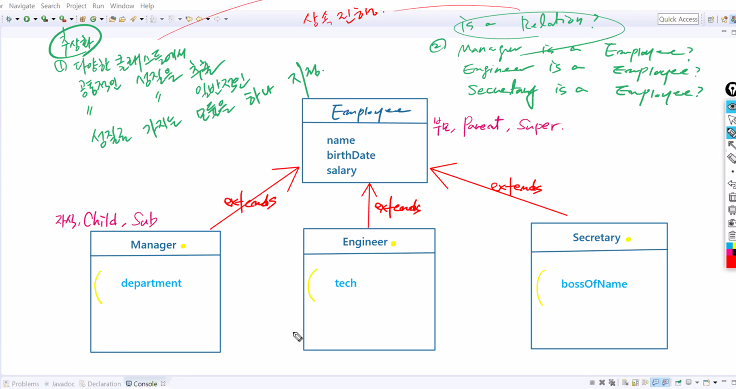 Navigate Search Project Run Window Help
Quick Access
상속 진행.
is a Relation?
추상화
① 다양한 클래스들에서
공통적인 성질을 추출
〃 〃 일반적인
성질로 가지는 모듈을 하나
지정.
② Manager is a Employee?
Engineer is a Employee?
Secretary is a Employee?
Employee
name
birthDate
salary
부모, Parent, Super.
extends
extends
extends
자식, Child, Sub
Manager
department
Engineer
tech
Secretary
bossOfName
Problems Javadoc Declaration Console